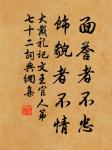 面誉者不忠
饰貌者不情
大戴礼记文王官人第
七十二词典网集